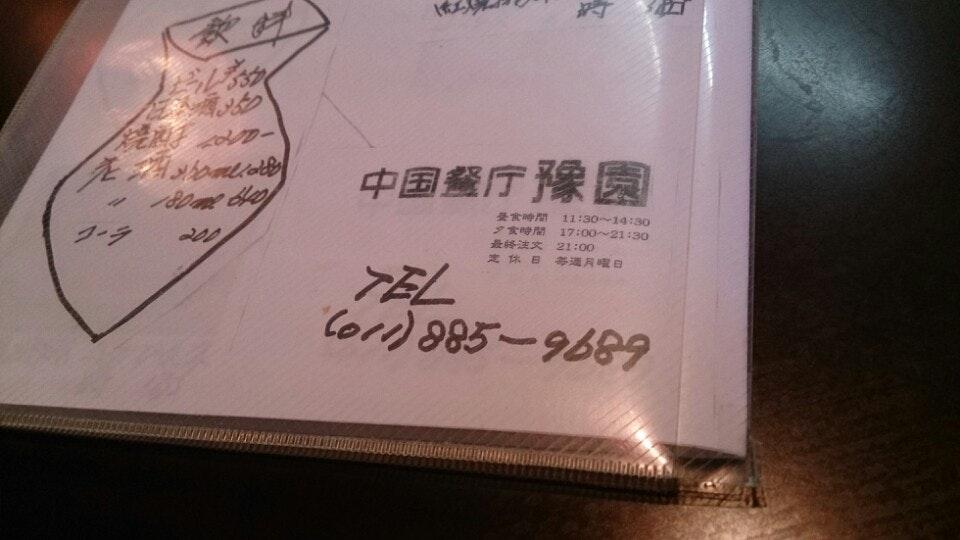 飲料
ビール ¥550
焼酎
老酒
〃 180ml
コーラ 200
時価
中国餐厅豫園
昼食時間 11:30〜14:30
夕食時間 17:00〜21:30
最終注文 21:00
定休日 毎週月曜日
TEL
(011)885-9689